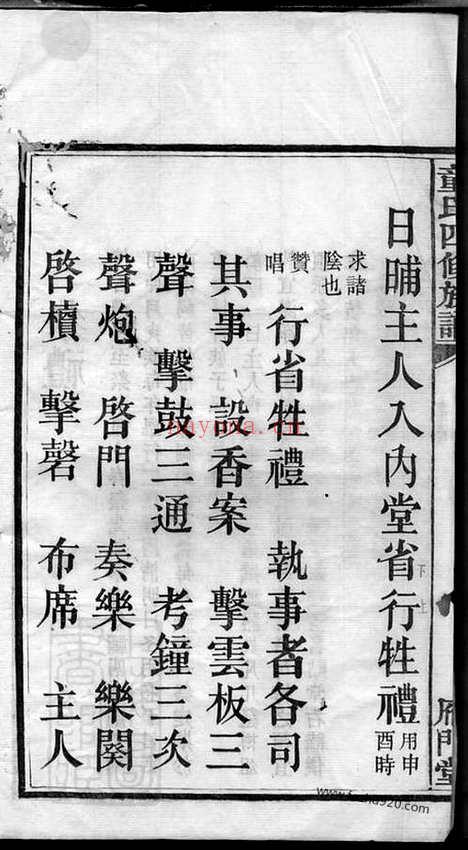 童氏四修族譜
雁門堂
日晡主人入內堂省行牲禮用申酉時
求諸陰也
贊唱 行省牲禮 執事者各司
其事 設香案 擊雲板三
聲 擊鼓三通 考鐘三次
聲炮 啓門 奏樂 樂闋
啓櫝 擊磬 布席 主人